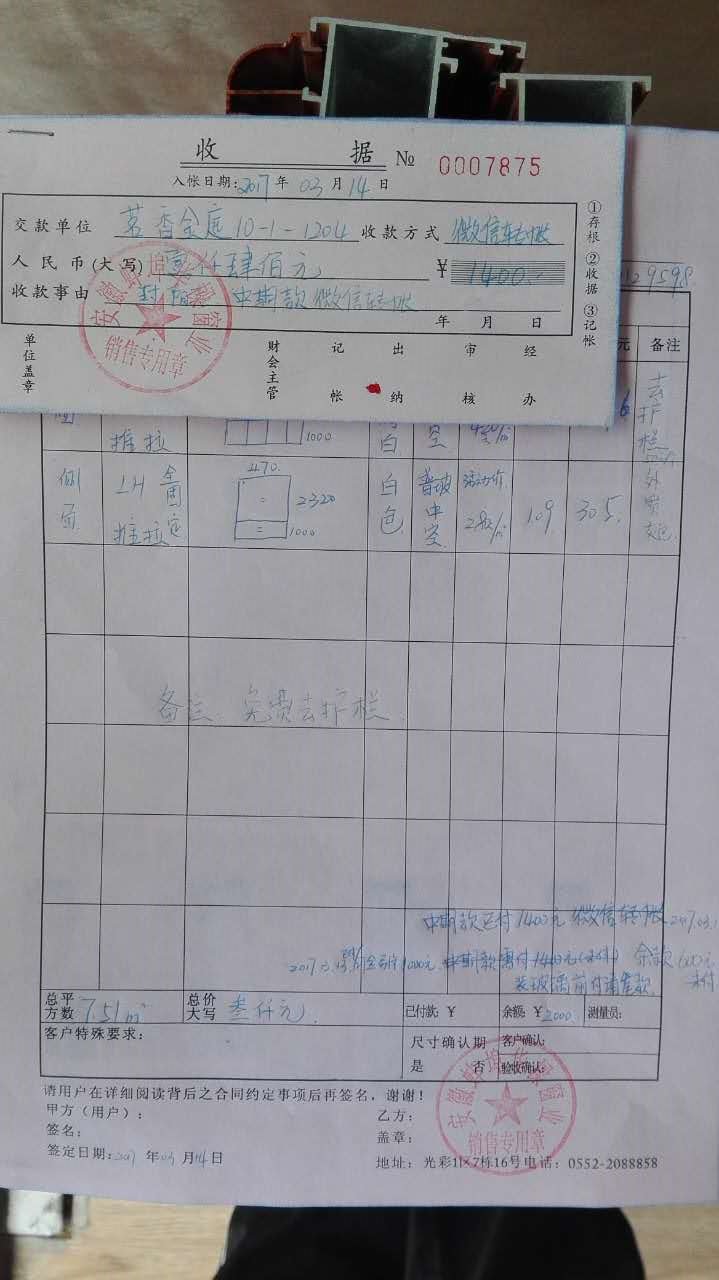 收 据 № 0007875
入帐日期:2017年 03 月 14 日
交款单位 茗香金庭10-1-1204 收款方式 微信转帐
人民币(大写) 壹仟肆佰元 ¥ 1400.
收款事由 封 中期款 微信转帐
年 月 日
①存根 ②收据 ③记帐
单位盖章 财会主管 记帐 出纳 审核 经办
销售专用章
29598
元 备注
推拉 1000 白 空 去护栏
侧面 推拉 470. 2320 1000 白色 普玻中空 活动价 1.09 305. 外
备注 免费去护栏
中期款已付1400元 微信转帐 2017.03.1
1000元 中期款需付1400元 余款600元
装玻璃前付清余款 未付
总平方数 7.51m² 总价大写 叁仟元 已付款:¥ 余额:¥2000 测量员:
客户特殊要求: 尺寸确认期 客户确认:
是 否 验收确认:
请用户在详细阅读背后之合同约定事项后再签名,谢谢!
甲方(用户): 乙方:
签名: 盖章:
签定日期:2017 年 03 月 14 日 地址:光彩11区7栋16号电话:0552-2088858
销售专用章